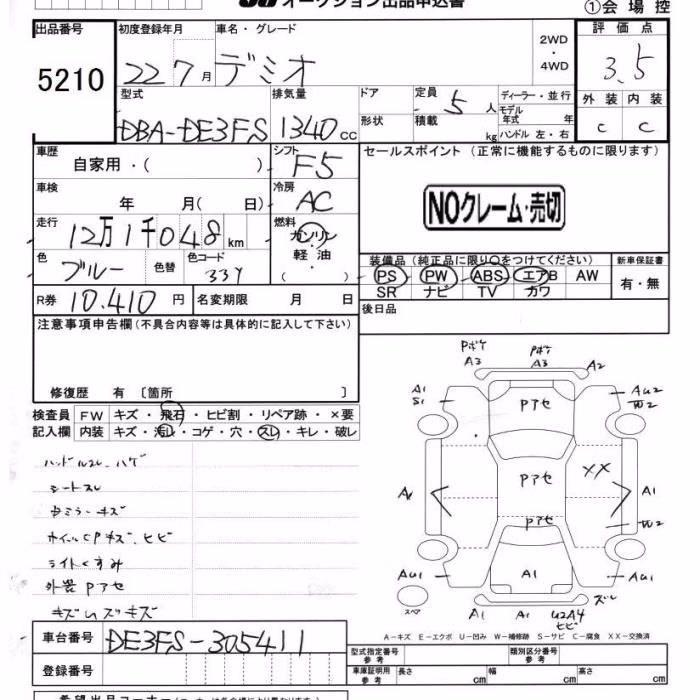 オークション出品申込書
①会場控
出品番号 5210
初度登録年月 22 7月
車名・グレード デミオ
2WD・4WD
評価点 3.5
外装 C 内装 C
型式 DBA-DE3FS
排気量 1340cc
ドア
形状
定員 5人
積載 kg
ディーラー・並行
モデル年式 年
ハンドル 左・右
車歴 自家用・( )
シフト F5
セールスポイント(正常に機能するものに限ります)
NOクレーム・売切
車検 年 月( 日)
冷房 AC
走行 12万1千048km
燃料 ガソリン・軽油・( )
色 ブルー 色替
色コード 33Y
装備品(純正品に限り○をつけてください)
PS PW ABS エアB AW
SR ナビ TV カワ
新車保証書 有・無
R券 10.410円
名変期限 月 日
後日品
注意事項申告欄(不具合内容等は具体的に記入して下さい)
修復歴 有〔箇所 〕
検査員記入欄
FW キズ・飛石・ヒビ割・リペア跡・×要
内装 キズ・汚レ・コゲ・穴・スレ・キレ・破レ
ハンドルスレ、ハゲ
シートスレ
ホイールCPキズ、ヒビ
ライトくすみ
外装Pアセ
Pボケ A3
Pボケ A3
A2
A1 S1
AU2 W2
Pアセ
Pアセ
XX
A1
W2
Pアセ
AU1
A1
AU1
ズレ
スペア
A1
A1
U2A4 ヒビ
A-キズ E-エクボ U-凹み W-補修跡 S-サビ C-腐食 XX-交換済
車台番号 DE3FS-305411
登録番号
型式指定番号 参考
類別区分番号 参考
車庫証明用 参考 長さ cm 幅 cm 高さ cm